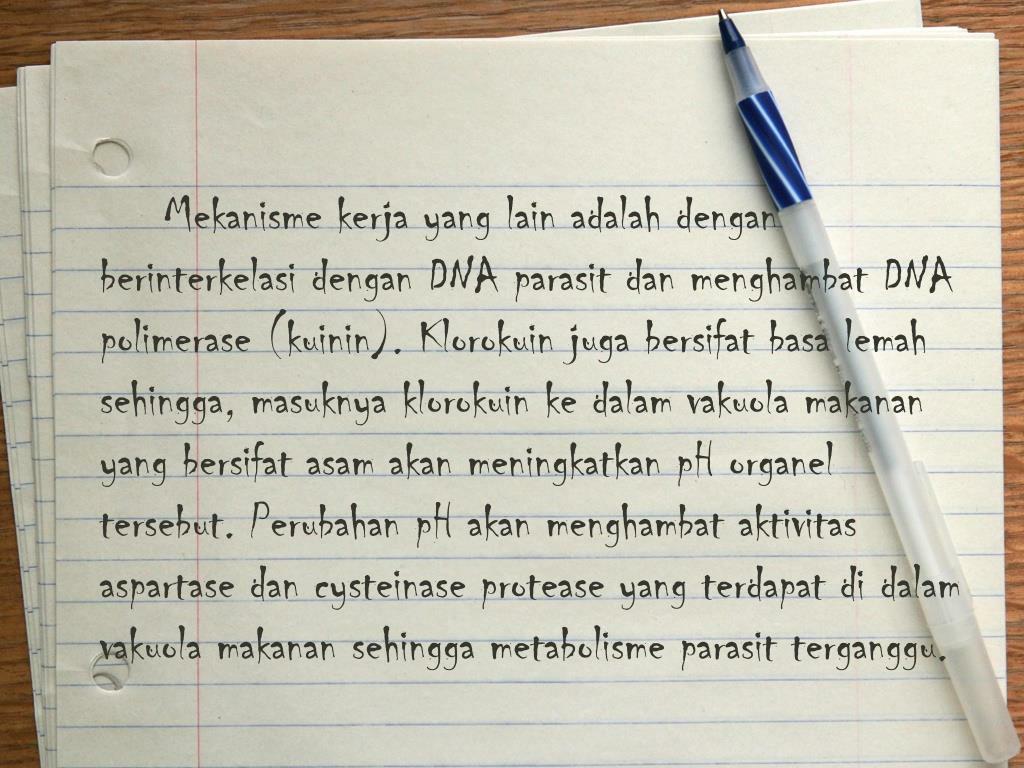 Mekanisme kerja yang lain adalah dengan
berinterkelasi dengan DNA parasit dan menghambat DNA
polimerase (kuinin). Klorokuin juga bersifat basa lemah
sehingga, masuknya klorokuin ke dalam vakuola makanan
yang bersifat asam akan meningkatkan pH organel
tersebut. Perubahan pH akan menghambat aktivitas
aspartase dan cysteinase protease yang terdapat di dalam
vakuola makanan sehingga metabolisme parasit terganggu.